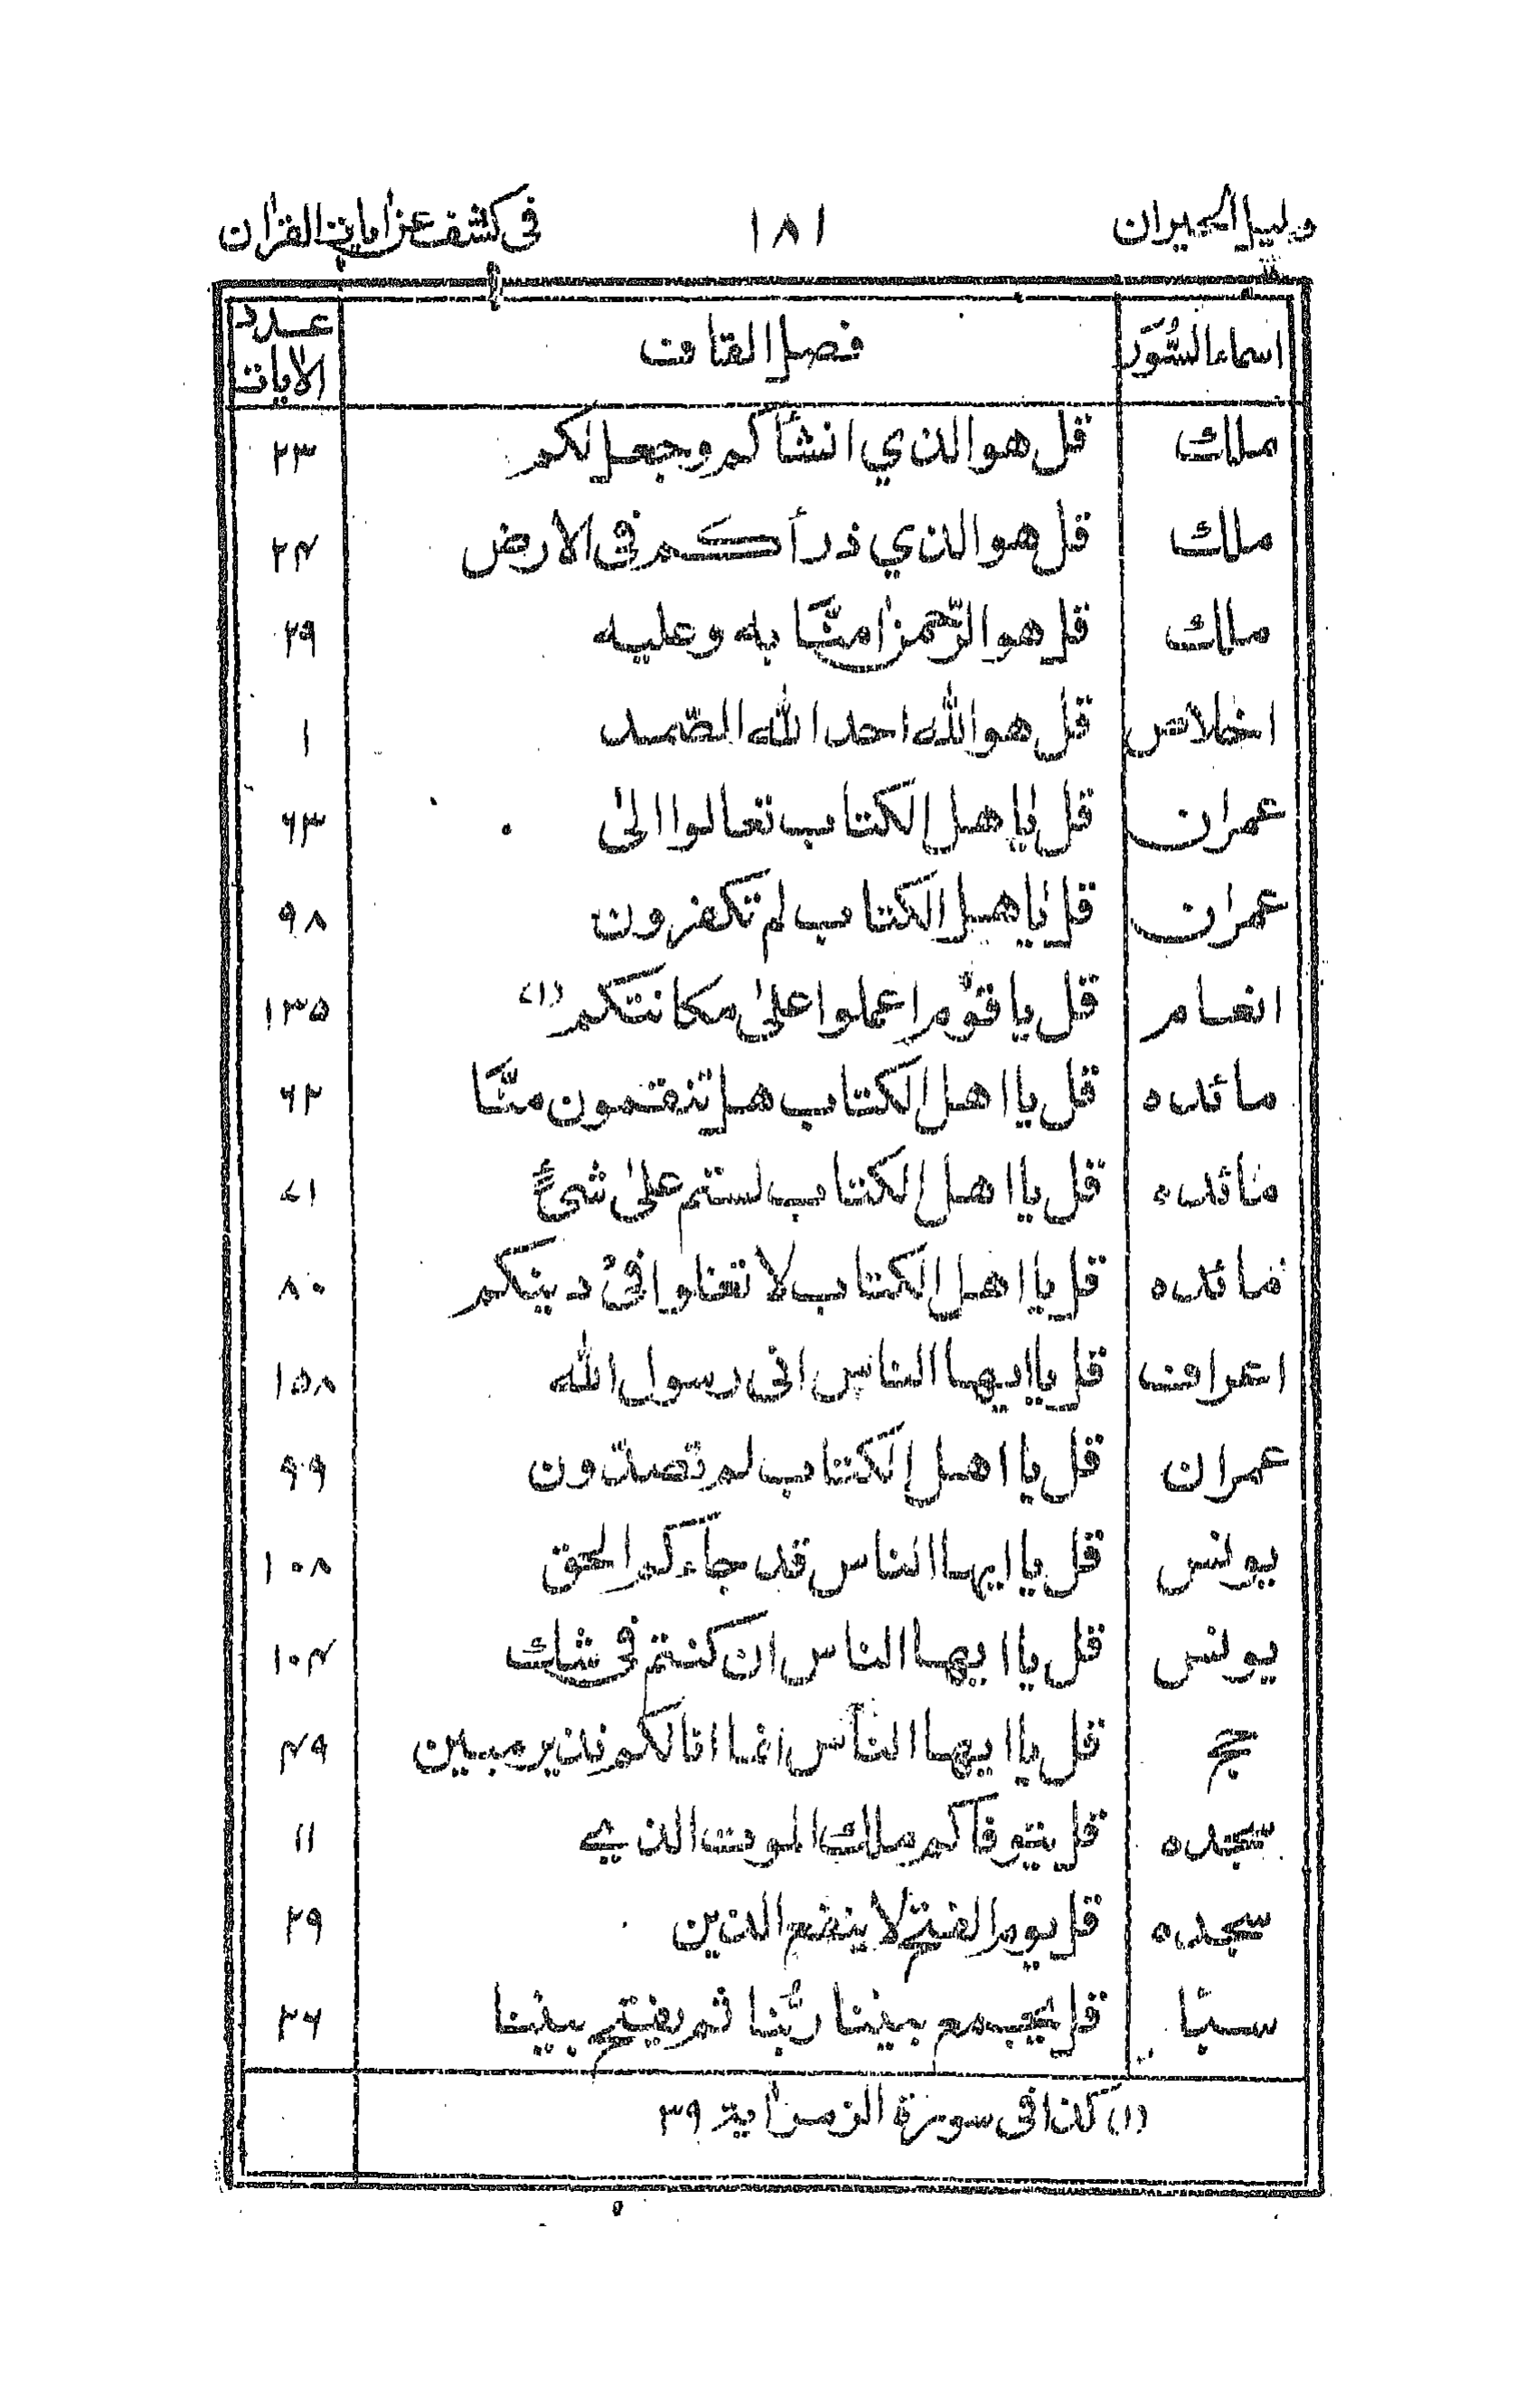 دليل الحيران ١٨١ في كشف عن اٰيات القرآن
اسماء السُّوَر فصل القاف عدد الآيات
ملك قل هو الذي انشأكم وجعل لكم ٢٣
ملك قل هو الذي ذرأكم فى الارض ٢٤
ملك قل هو الرّحمن اٰمنَّا به وعليه ٢٩
اخلاص قل هو الله احد الله الصّمد ١
عمران قل يٰاهل الكتاب تعالوا الىٰ ٦٣
عمران قل يٰاهل الكتاب لم تكفرون ٩٨
انعام قل يا قوم اعملوا علىٰ مكانتكم (١) ١٣٥
مائده قل يا اهل الكتاب هل تنقمون منَّا ٦٢
مائده قل يا اهل الكتاب لستم علىٰ شئٍ ٧١
مائده قل يا اهل الكتاب لا تغلوا فى دينكم ٨٠
اعراف قل يا ايها الناس انى رسول الله ١٥٨
عمران قل يا اهل الكتاب لم تصدّون ٩٩
يونس قل يا ايها الناس قد جاءكم الحق ١٠٨
يونس قل يا ايها الناس ان كنتم فى شك ١٠٤
حج قل يا ايها الناس انما انا لكم نذير مبين ٤٩
سجده قل يتوفاكم ملك الموت الذي ١١
سجده قل يوم الفتح لا ينفع الذين ٢٩
سبأ قل يجمع بيننا ربّنا ثم يفتح بيننا ٢٦
(١) كذا فى سورة الزمر اٰية ٣٩